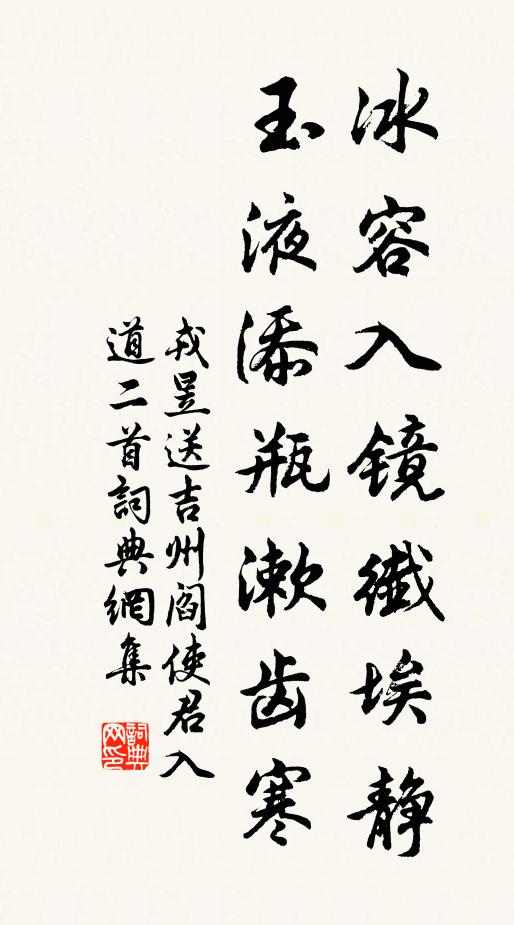 冰容入镜纤埃静
玉液添瓶漱齿寒
戎昱送吉州阎使君入
道二首詞典網集
詞典
网印